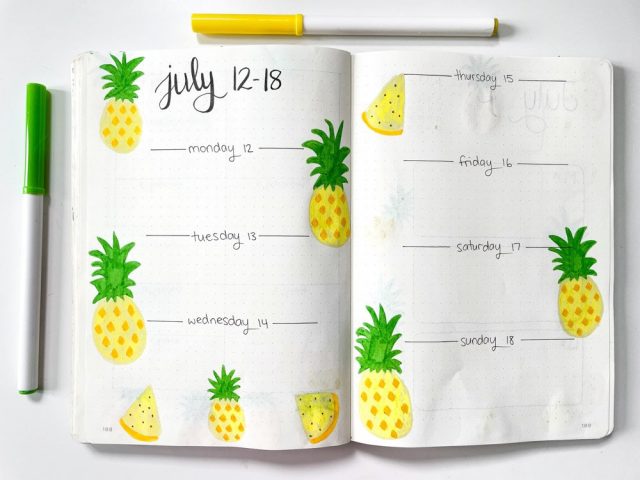 july 12-18
monday 12
tuesday 13
wednesday 14
188
thursday 15
friday 16
saturday 17
sunday 18